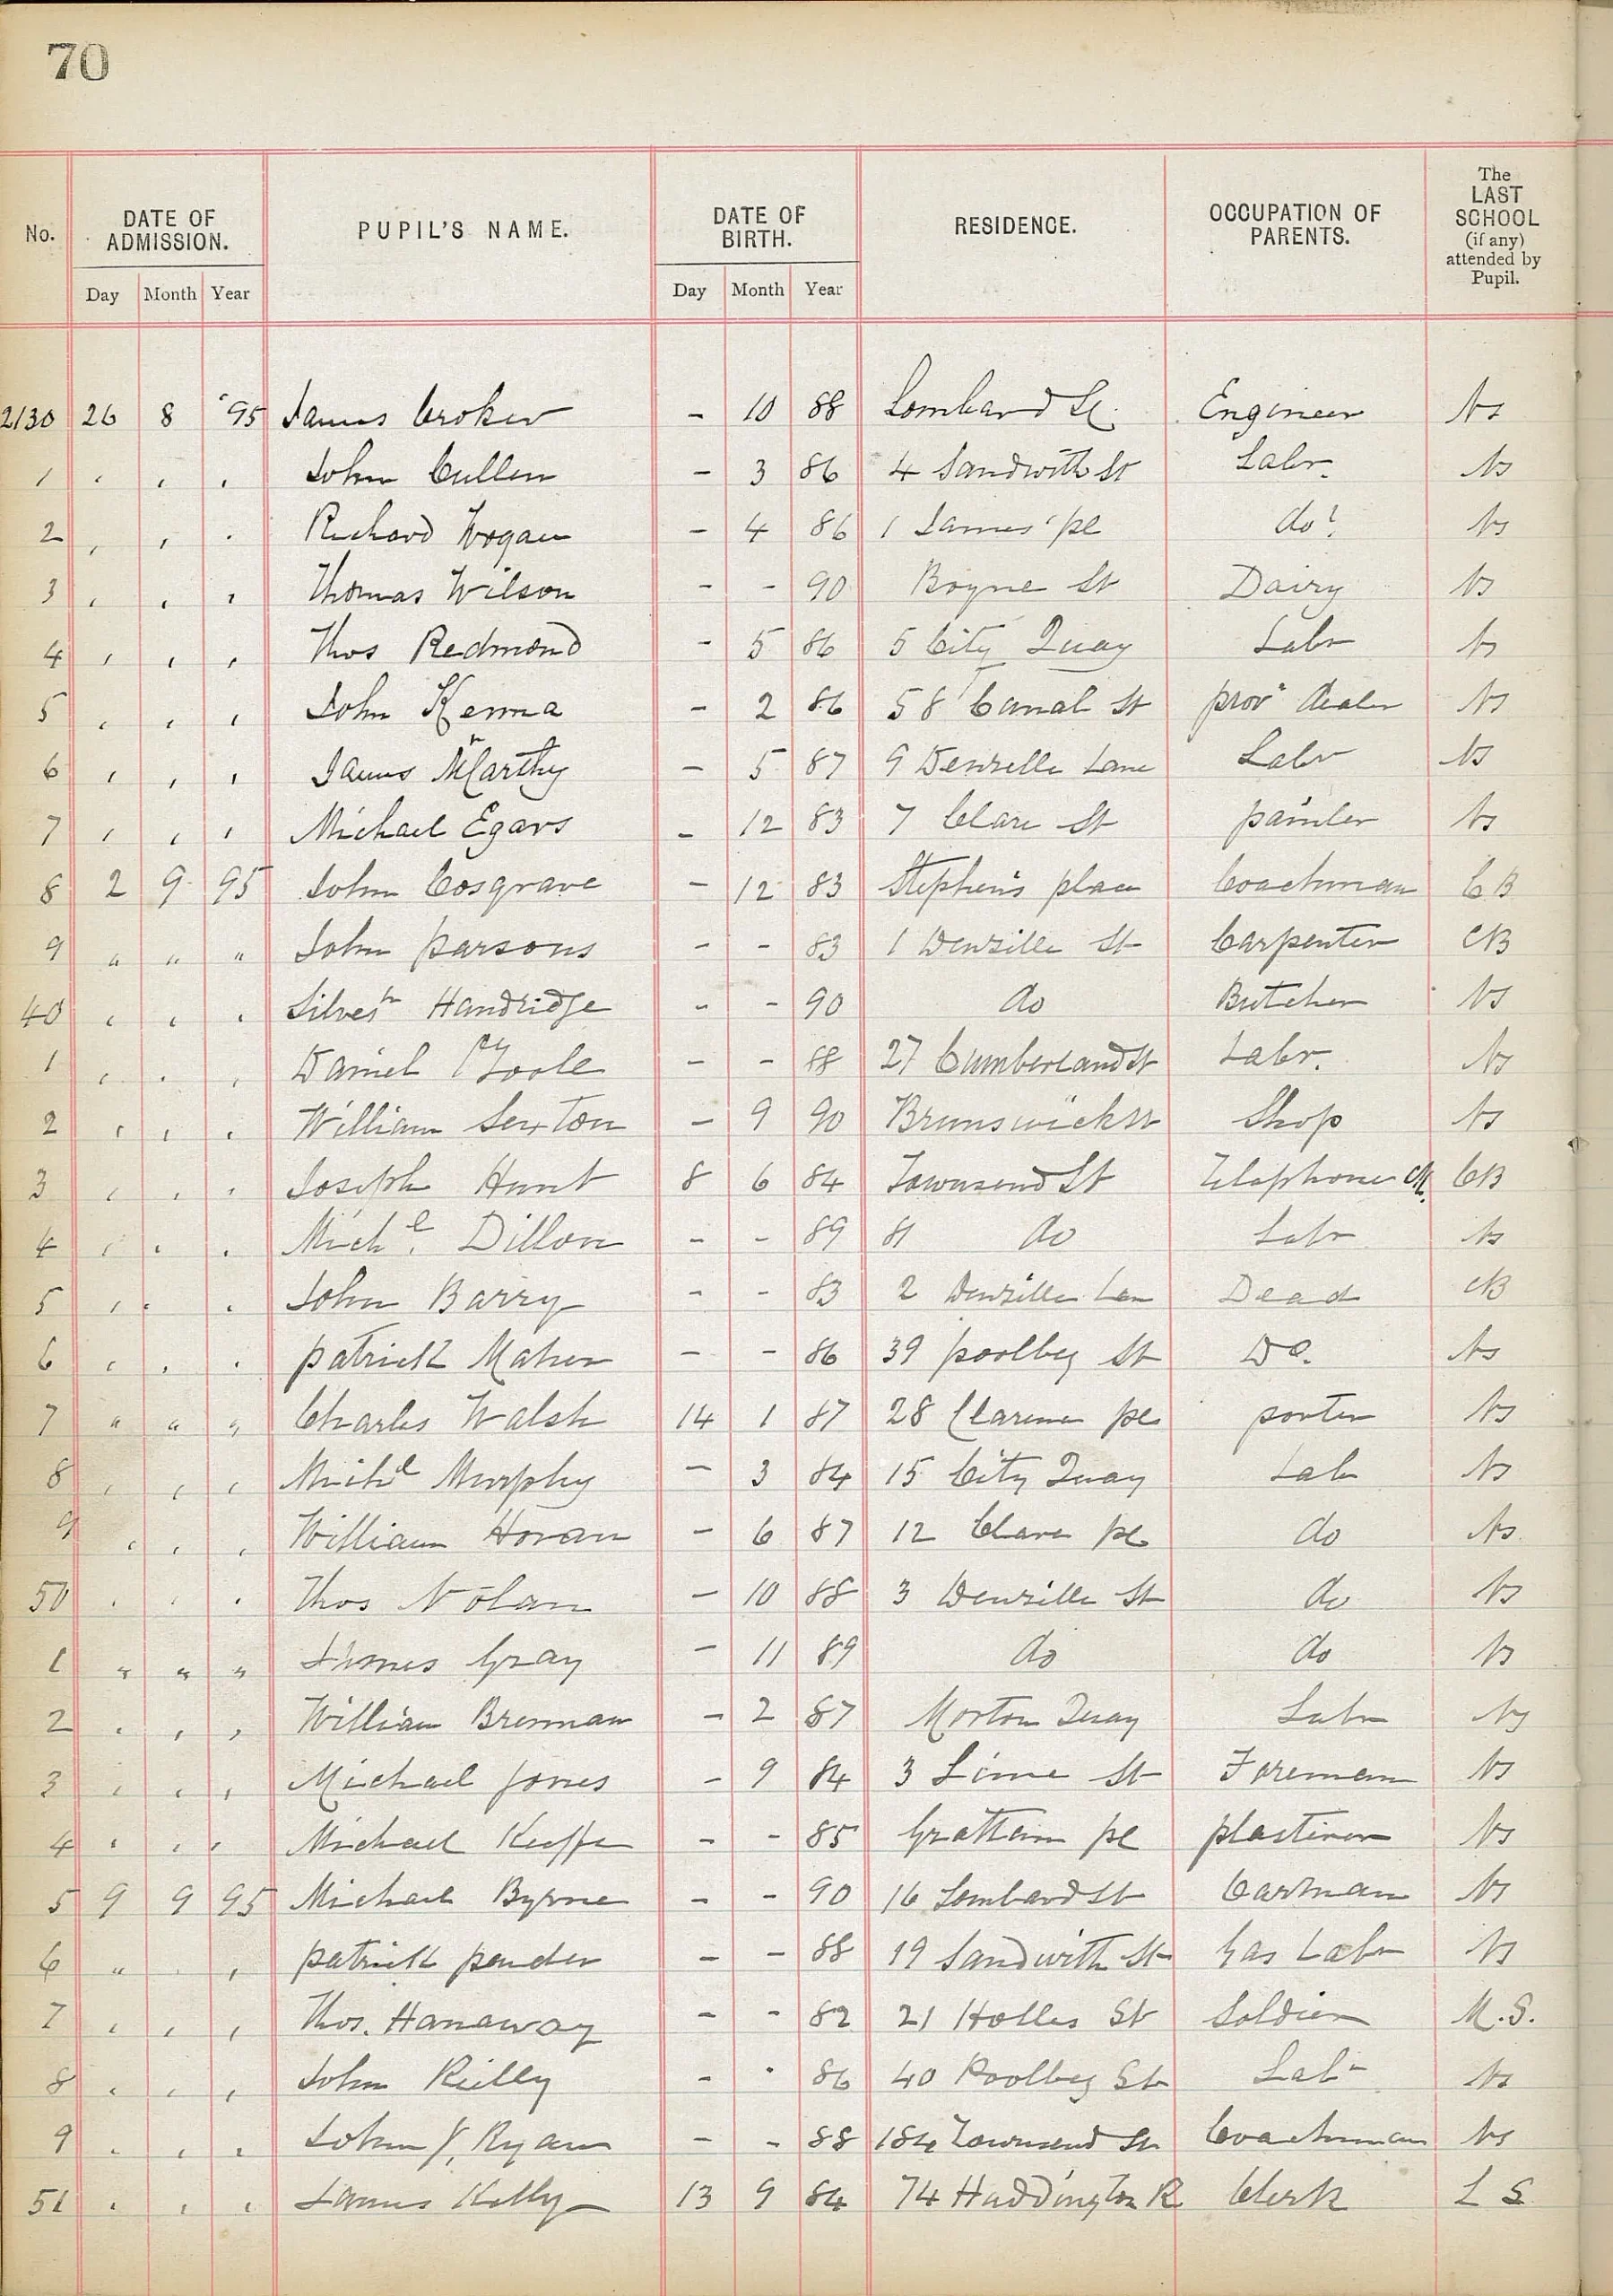 70
No. DATE OF ADMISSION. PUPIL'S NAME. DATE OF BIRTH. RESIDENCE. OCCUPATION OF PARENTS. The LAST SCHOOL (if any) attended by Pupil.
Day Month Year Day Month Year
2130 26 8 '95 James Croker - 10 88 Lombard St. Engineer Ns
1 , , , John Cullen - 3 86 4 Sandwith St Labr. Ns
2 , , . Richard Hogan - 4 86 1 James' pl do Ns
3 , , , Thomas Wilson - - 90 Boyne St Dairy Ns
4 , , , Thos Redmond - 5 86 5 City Quay Labr Ns
5 , , , John Kenna - 2 86 58 Canal St provn dealer Ns
6 , , , James McCarthy - 5 87 9 Denzille Lane Labr Ns
7 , , , Michael Egars - 12 83 7 Clare St painter Ns
8 2 9 95 John Cosgrave - 12 83 Stephen's place Coachman CB
9 " " " John parsons - - 83 1 Denzille St Carpenter CB
40 , , , Silvestr Handridge - - 90 do Butcher Ns
1 , . , Daniel O'Toole - - 88 27 Cumberland St Labr. Ns
2 , , , William Sexton - 9 90 Brunswick St Shop Ns
3 , , , Joseph Hunt 8 6 84 Townsend St Telephone CB
4 , , . Michl. Dillon - - 89 81 do Labr Ns
5 , , . John Barry - - 83 2 Denzille Lan Dead CB
6 , , . patrick Maher - - 86 39 poolbeg St Do. Ns
7 " " " Charles Walsh 14 1 87 28 Clarence pl porter Ns
8 , , , Michl Murphy - 3 84 15 City Quay Labr Ns
9 , , , William Horan - 6 87 12 Clare pl do Ns
50 , , . Thos Nolan - 10 88 3 Denzille St do Ns
1 " " " James Gray - 11 89 do do Ns
2 , , , William Brennan - 2 87 Morton Quay Labr Ns
3 , , , Michael Jones - 9 84 3 Lime St Foreman Ns
4 , , , Michael Keeffe - - 85 Grattan pl plasterer Ns
5 9 9 95 Michael Byrne - - 90 16 Lombard St Cartman Ns
6 " . , patrick pender - - 88 19 Sandwith St Gas Labr Ns
7 , , , Thos. Hanaway - - 82 21 Holles St Soldier M.S.
8 , , , John Reilly - . 86 40 Poolbeg St Labr Ns
9 , , , John J. Ryan - - 88 184 Townsend St Coachman Ns
51 , , , James Kelly 13 9 84 74 Haddington R Clerk L S